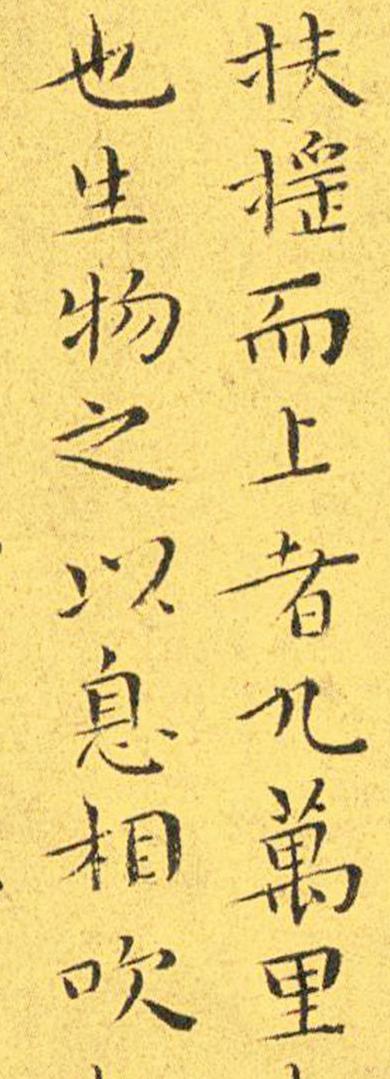 扶摇而上者九萬里
也生物之以息相吹